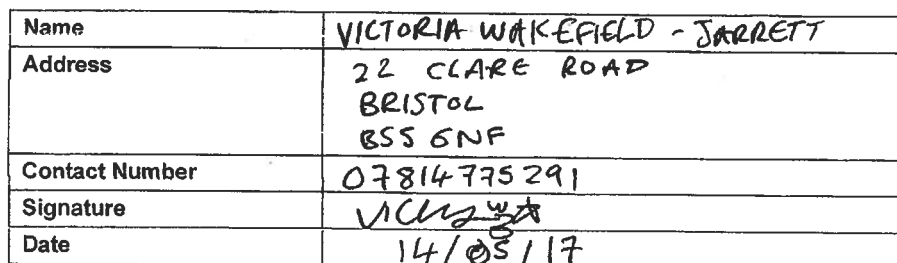 Name VICTORIA WAKEFIELD - JARRETT
Address 22 CLARE ROAD
BRISTOL
BS5 6NF
Contact Number 07814775291
Signature
Date 14/05/17